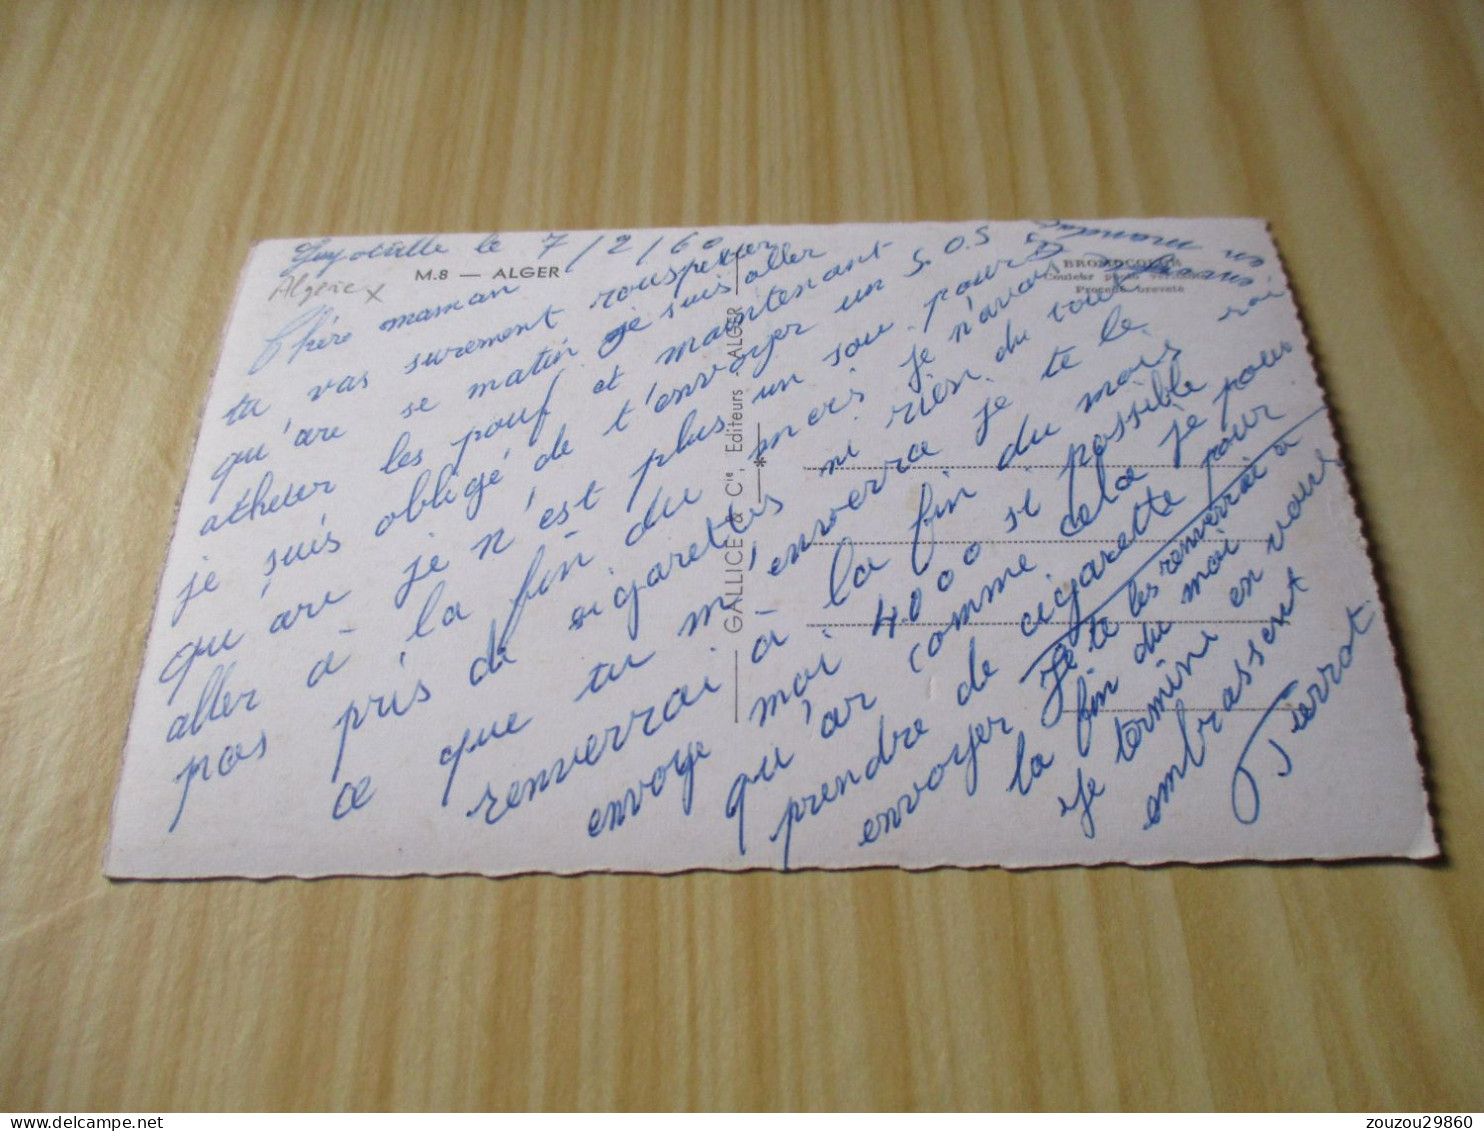 Guyotville le 7/2/60
Algérie x
M.8 — ALGER
BROMOCOLOR
Procédé breveté
GALLICE & Cie, Editeurs - ALGER
Chère maman
tu vas surement rouspeter
qu'are se matin je suis aller
atheter les pouf et maintenant
je suis obligé de t'envoyer un S.O.S
qu'are je n'est plus un sou pour
aller à la fin du mois je n'avais
pas pris de cigarettes ni rien du tout
ce que tu m'enverra je te le
renverrai à la fin du mois
envoye moi 4000 si possible
qu'ar comme cela je pour rai
prendre de cigarette pour
envoyer
Je te les renverrai a
la fin du moi
Je termine en vous
embrassent
Pierrot
en mandat